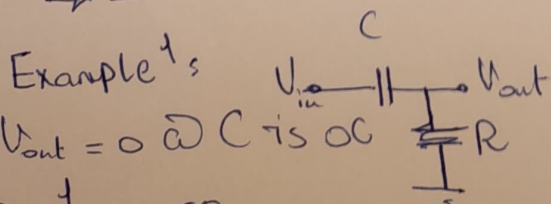 Example 1:
C
Vin
Vout
R
Vout = 0 @ C is OC